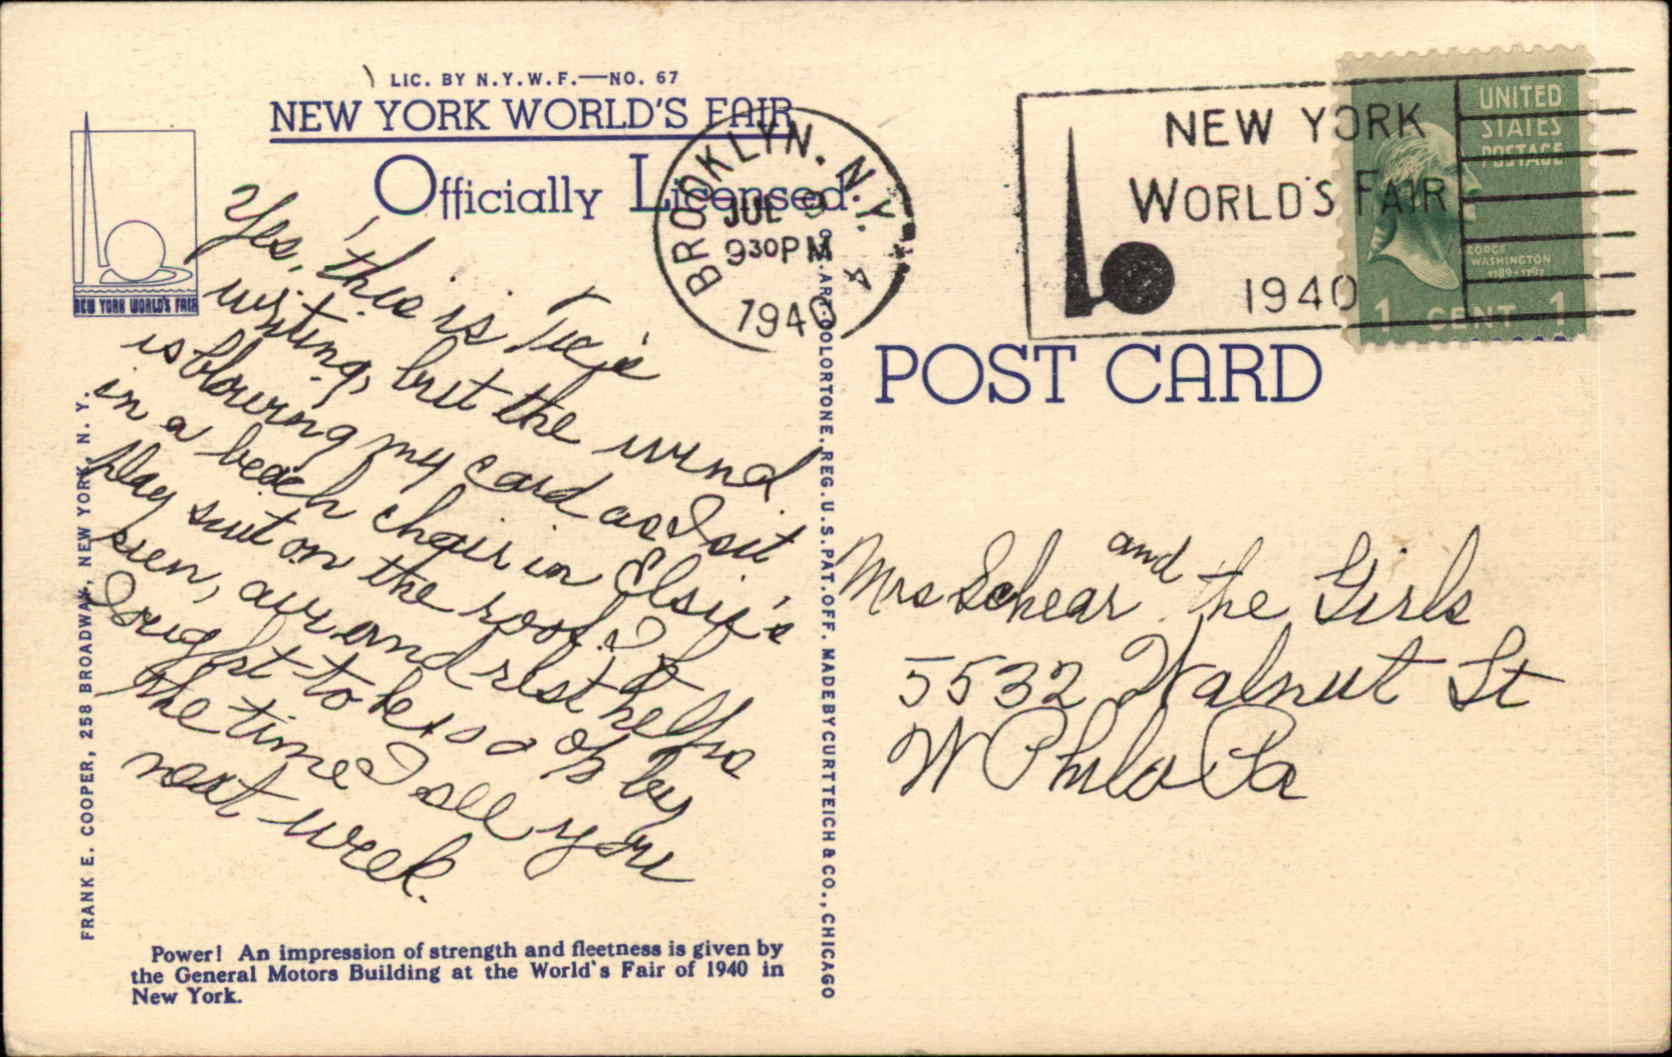 LIC. BY N.Y.W.F.—NO. 67
NEW YORK WORLD'S FAIR
Officially Licensed
NEW YORK WORLD'S FAIR
Yes, this is
writing, but the wind
is blowing my card as I sit
in a beach chair in Elsie's
play suit on the roof. I
air and rest helps
I ought to be by
the time I see you
next week.
Power! An impression of strength and fleetness is given by
the General Motors Building at the World's Fair of 1940 in
New York.
FRANK E. COOPER, 258 BROADWAY, NEW YORK, N. Y.
C. ART-COLORTONE. REG. U.S. PAT. OFF. MADE BY CURT TEICH & CO., CHICAGO
BROOKLYN, N.Y.
JUL 9
930PM
1940
NEW YORK
WORLD'S FAIR
1940
UNITED
STATES
POSTAGE
GEORGE
WASHINGTON
1789-1797
1 CENT 1
POST CARD
Mrs Schear and the Girls
5532 Walnut St
W Phila Pa